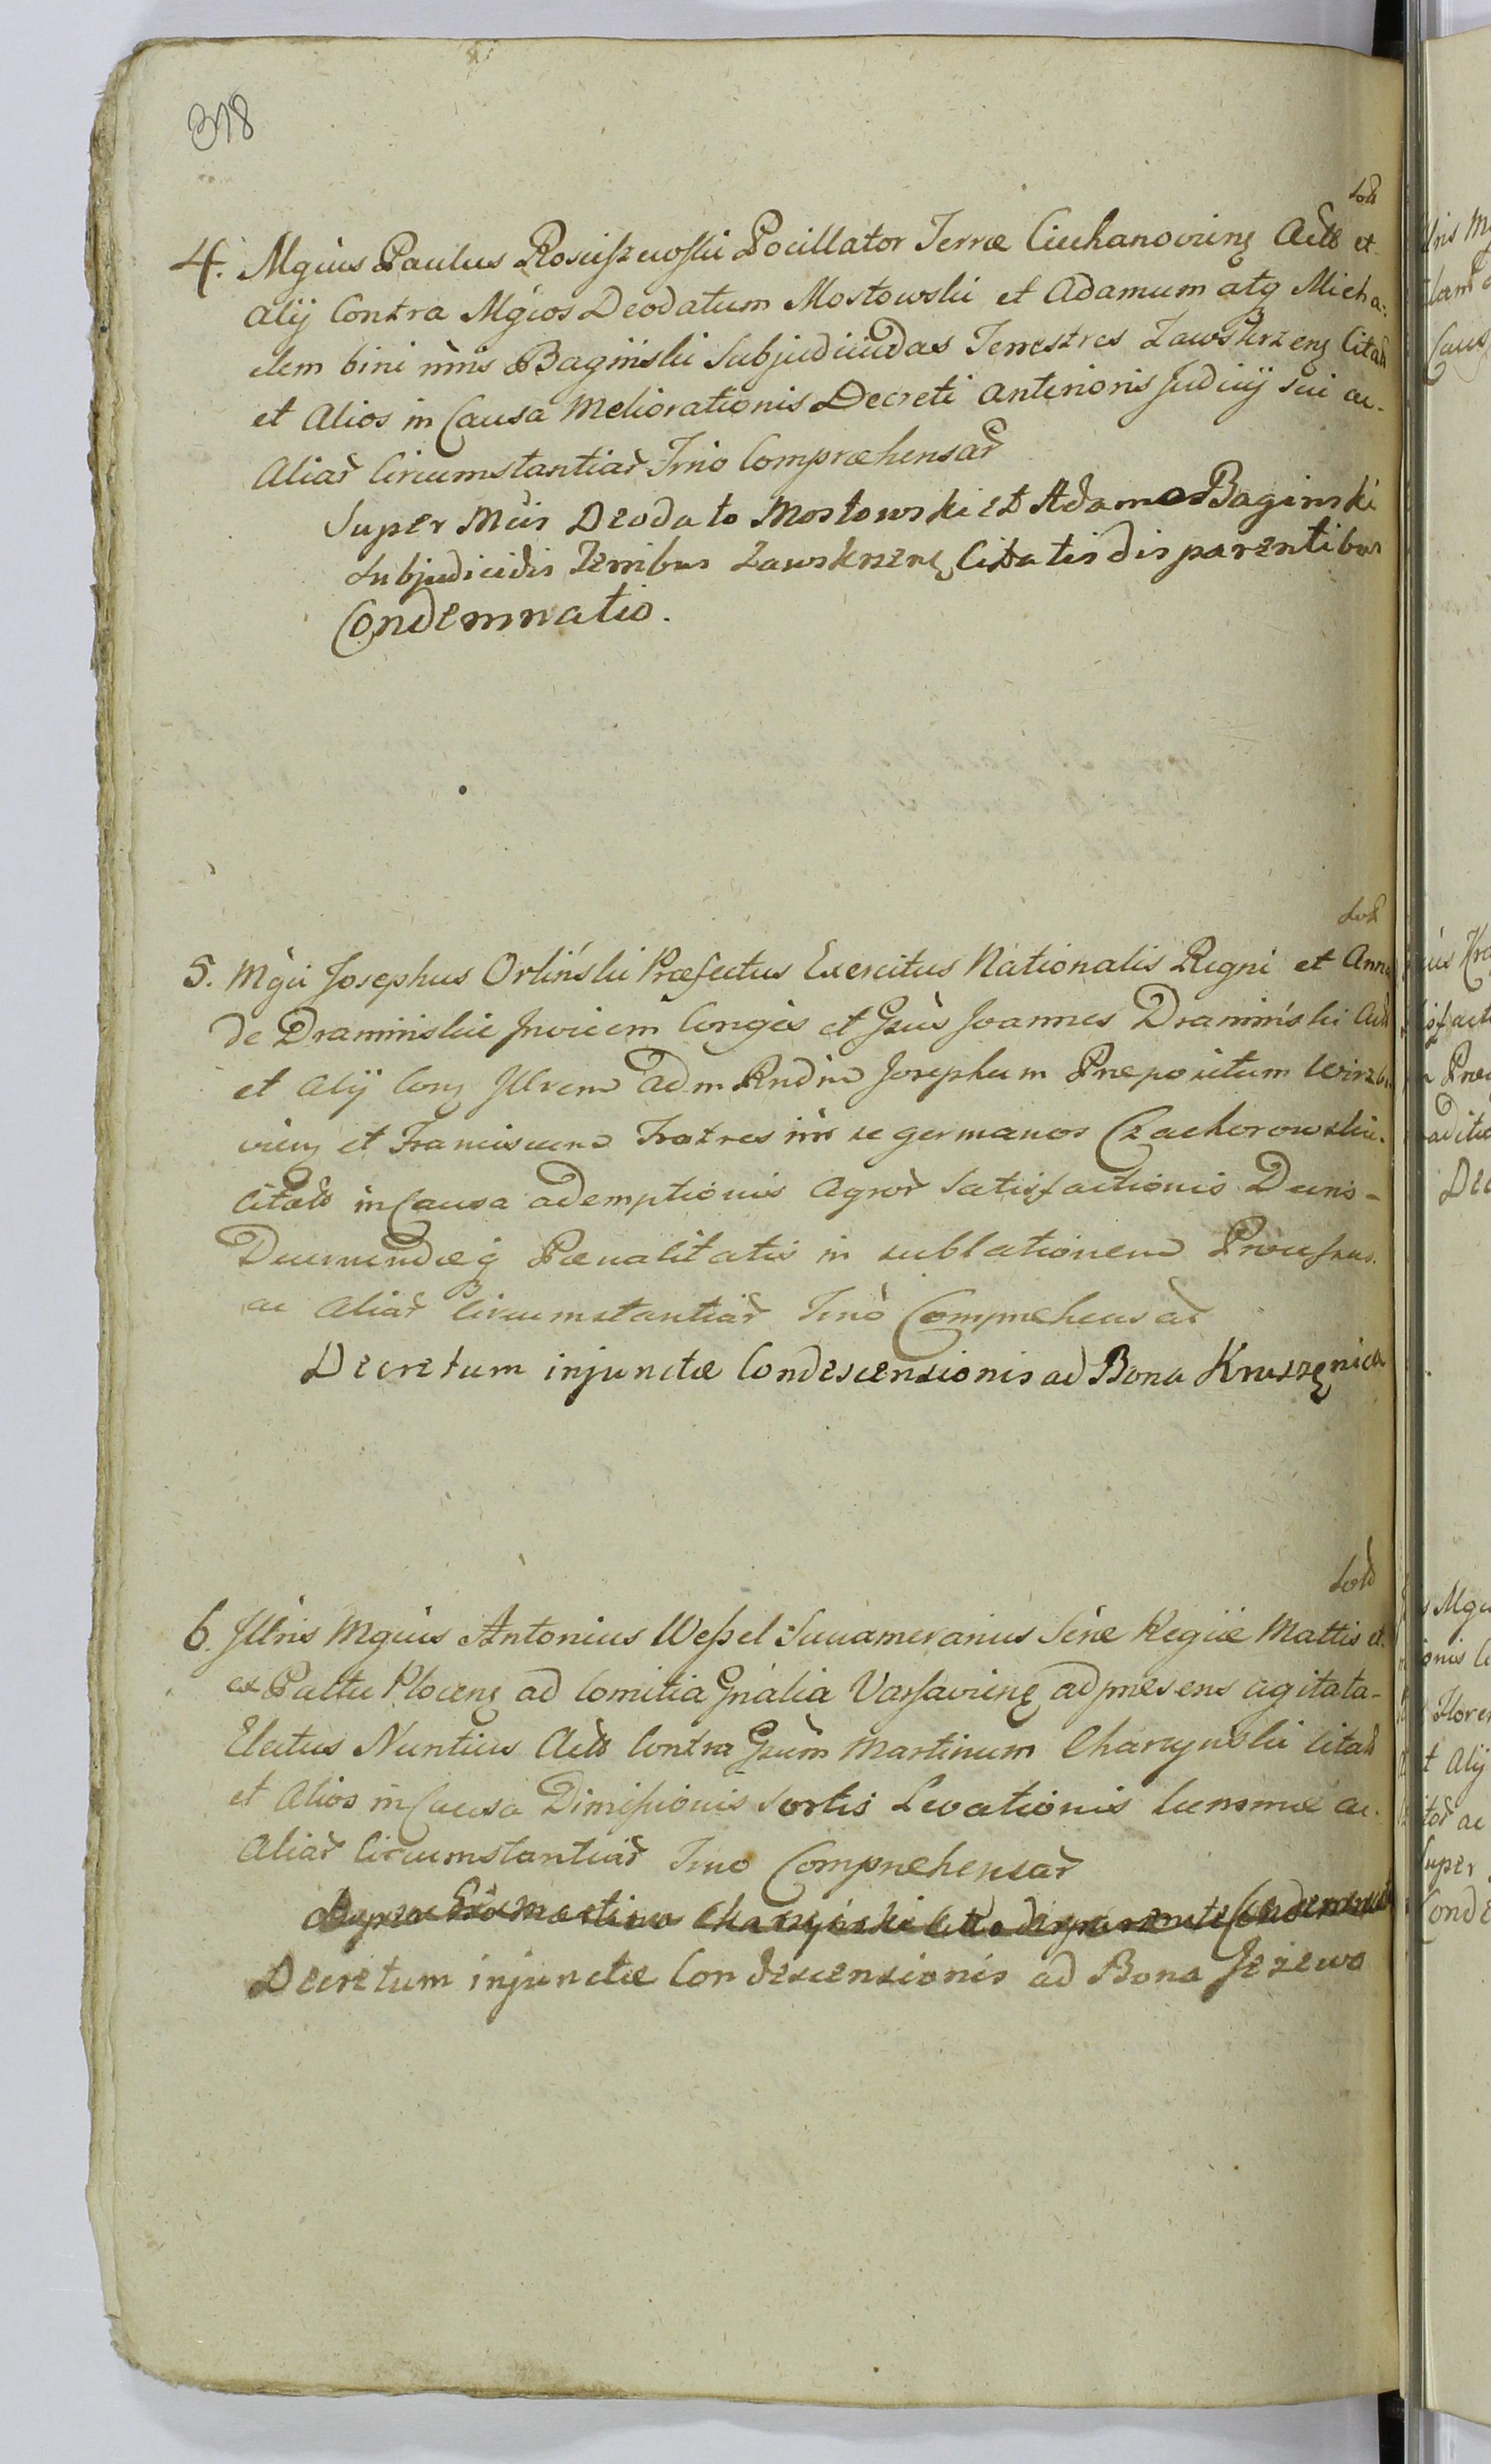 318
Sod
4. Mgcus Paulus Rosciszewski Pocillator Terræ Ciechanovieng Actb et
Alij Contra Mgcos Deodatum Mostowski et Adamum atq Micha-
elem bini nnis Bagiński Subjudicidas Terrestres Zawskrzeng Citatb
et Alios in Causa Meliorationis Decreti anterioris Judicij sui ac-
Aliar Circumstantiar Trio Compræhensar
Super Mcis Deodato Mostowski et Adamo Baginski
Subjudicidis Terribus Zawskrzeng Citatis disparentibus
Condemnatio.
Sod
5. Mgci Josephus Orliński Præfectus Exercitus Nationalis Regni et Anna
de Dramińskie Invicem Conges et Gsus Joannes Dramiński Actb
et Alij Cong Illrem Adm Rndm Josephum Præpositum Wirzb
vieng et Franciscum Fratres inr se germanos Czachorowskie
Citatb in Causa ademptionis Agror Satisfactionis Decris-
Decimendæq Pœnalitatis in sublationem
ac Aliar Circumstantiar Trio Compræhensar
Decretum injunctæ Condescensionis ad Bona Kruszenica
Sod
6. Illris Mgcus Antonius Weszel Succamerarius Scræ Regiæ Mattis et
ex Pattu Ploceng ad Comitia Gnalia Varsavieng ad præsens agitata-
Electus Nuntius Actb Contra Gsum Martinum Charzyński Citatb
et Alios in Causa Dimissionis Sortis Levationis Summæ ac.
Aliar Circumstantiar Trio Compræhensar
Super Gso Martino Charzyński Citto disparente Condemnatio
Decretum injunctæ Condescensionis ad Bona Jeżewo